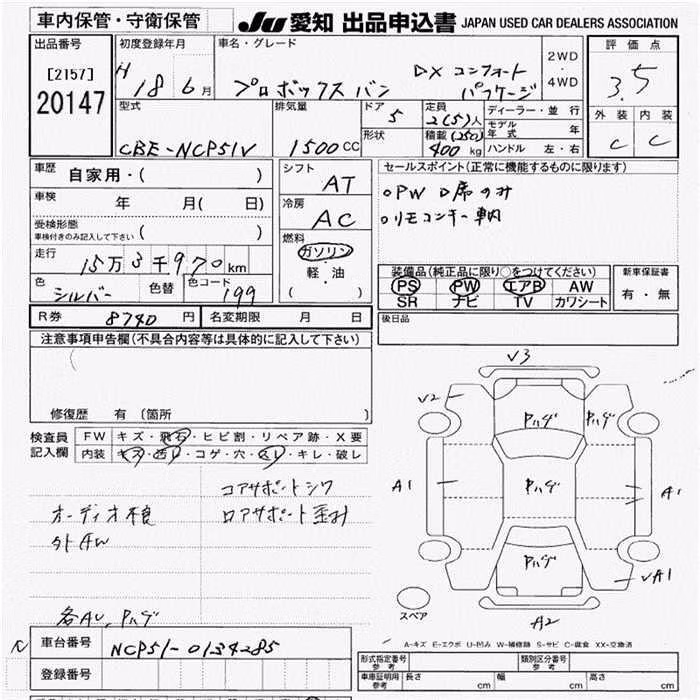 車内保管・守衛保管
JU 愛知 出品申込書 JAPAN USED CAR DEALERS ASSOCIATION
出品番号
[2157]
20147
初度登録年月
H 18 6月
車名・グレード
プロボックスバン
DX コンフォート
パッケージ
2WD
・
4WD
評価点
3.5
外装 内装
C C
型式
CBE-NCP51V
排気量
1500CC
ドア
5
形状
定員
2(5)人
積載(250)
400kg
ディーラー・並行
モデル年式 年
ハンドル 左・右
車歴 自家用・( )
車検 年 月( 日)
受検形態
車検付きのみ記入して下さい ( )
走行
15万3千970km
色 シルバー 色替 色コード 199
シフト
AT
冷房
AC
燃料
ガソリン
・
軽・油
( )
セールスポイント(正常に機能するものに限ります)
○PW D席のみ
○リモコンキー車内
装備品(純正品に限り○をつけてください)
PS PW エアB AW
SR ナビ TV カワシート
新車保証書
有・無
R券 8740円 名変期限 月 日
後日品
注意事項申告欄(不具合内容等は具体的に記入して下さい)
修復歴 有 (箇所 )
検査員記入欄
FW キズ・飛石・ヒビ割・リペア跡・X要
内装 キズ・汚レ・コゲ・穴・スレ・キレ・破レ
コアサポートシワ
オーディオ不良 ロアサポート歪み
外AW
各AU,Pハゲ
V3
V2
Pハゲ Pハゲ
A1 Pハゲ A1
Pハゲ
VA1
A2
スペア
A-キズ E-エクボ U-凹み W-補修跡 S-サビ C-腐食 XX-交換済
車台番号 NCP51-0134285
登録番号
形式指定番号 参考
類別区分番号 参考
車庫証明用 参考 長さ cm 幅 cm 高さ cm